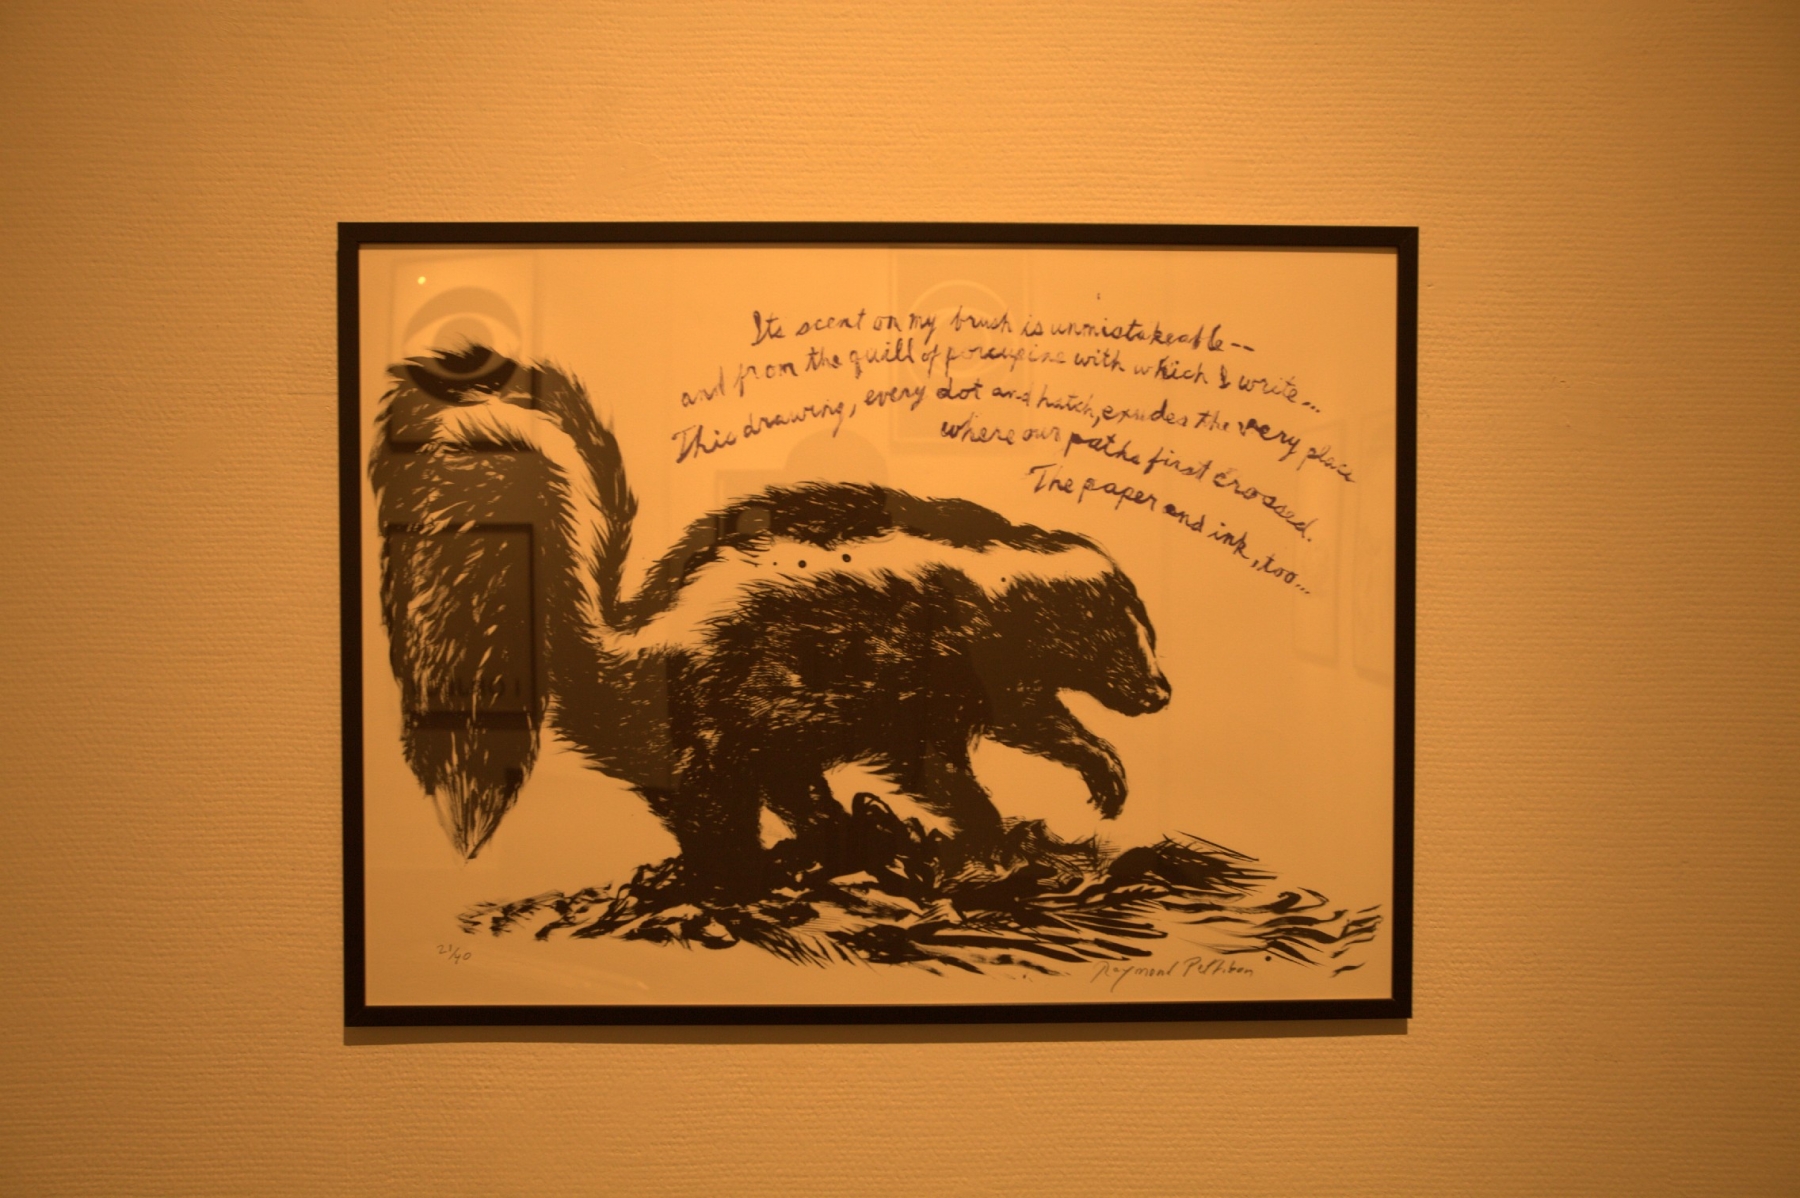 Its scent on my brush is unmistakeable--
and from the quill of porcupine with which I write...
This drawing, every dot and hatch, exudes the very place
where our paths first crossed.
The paper and ink, too...
/40
Raymond Pettibon